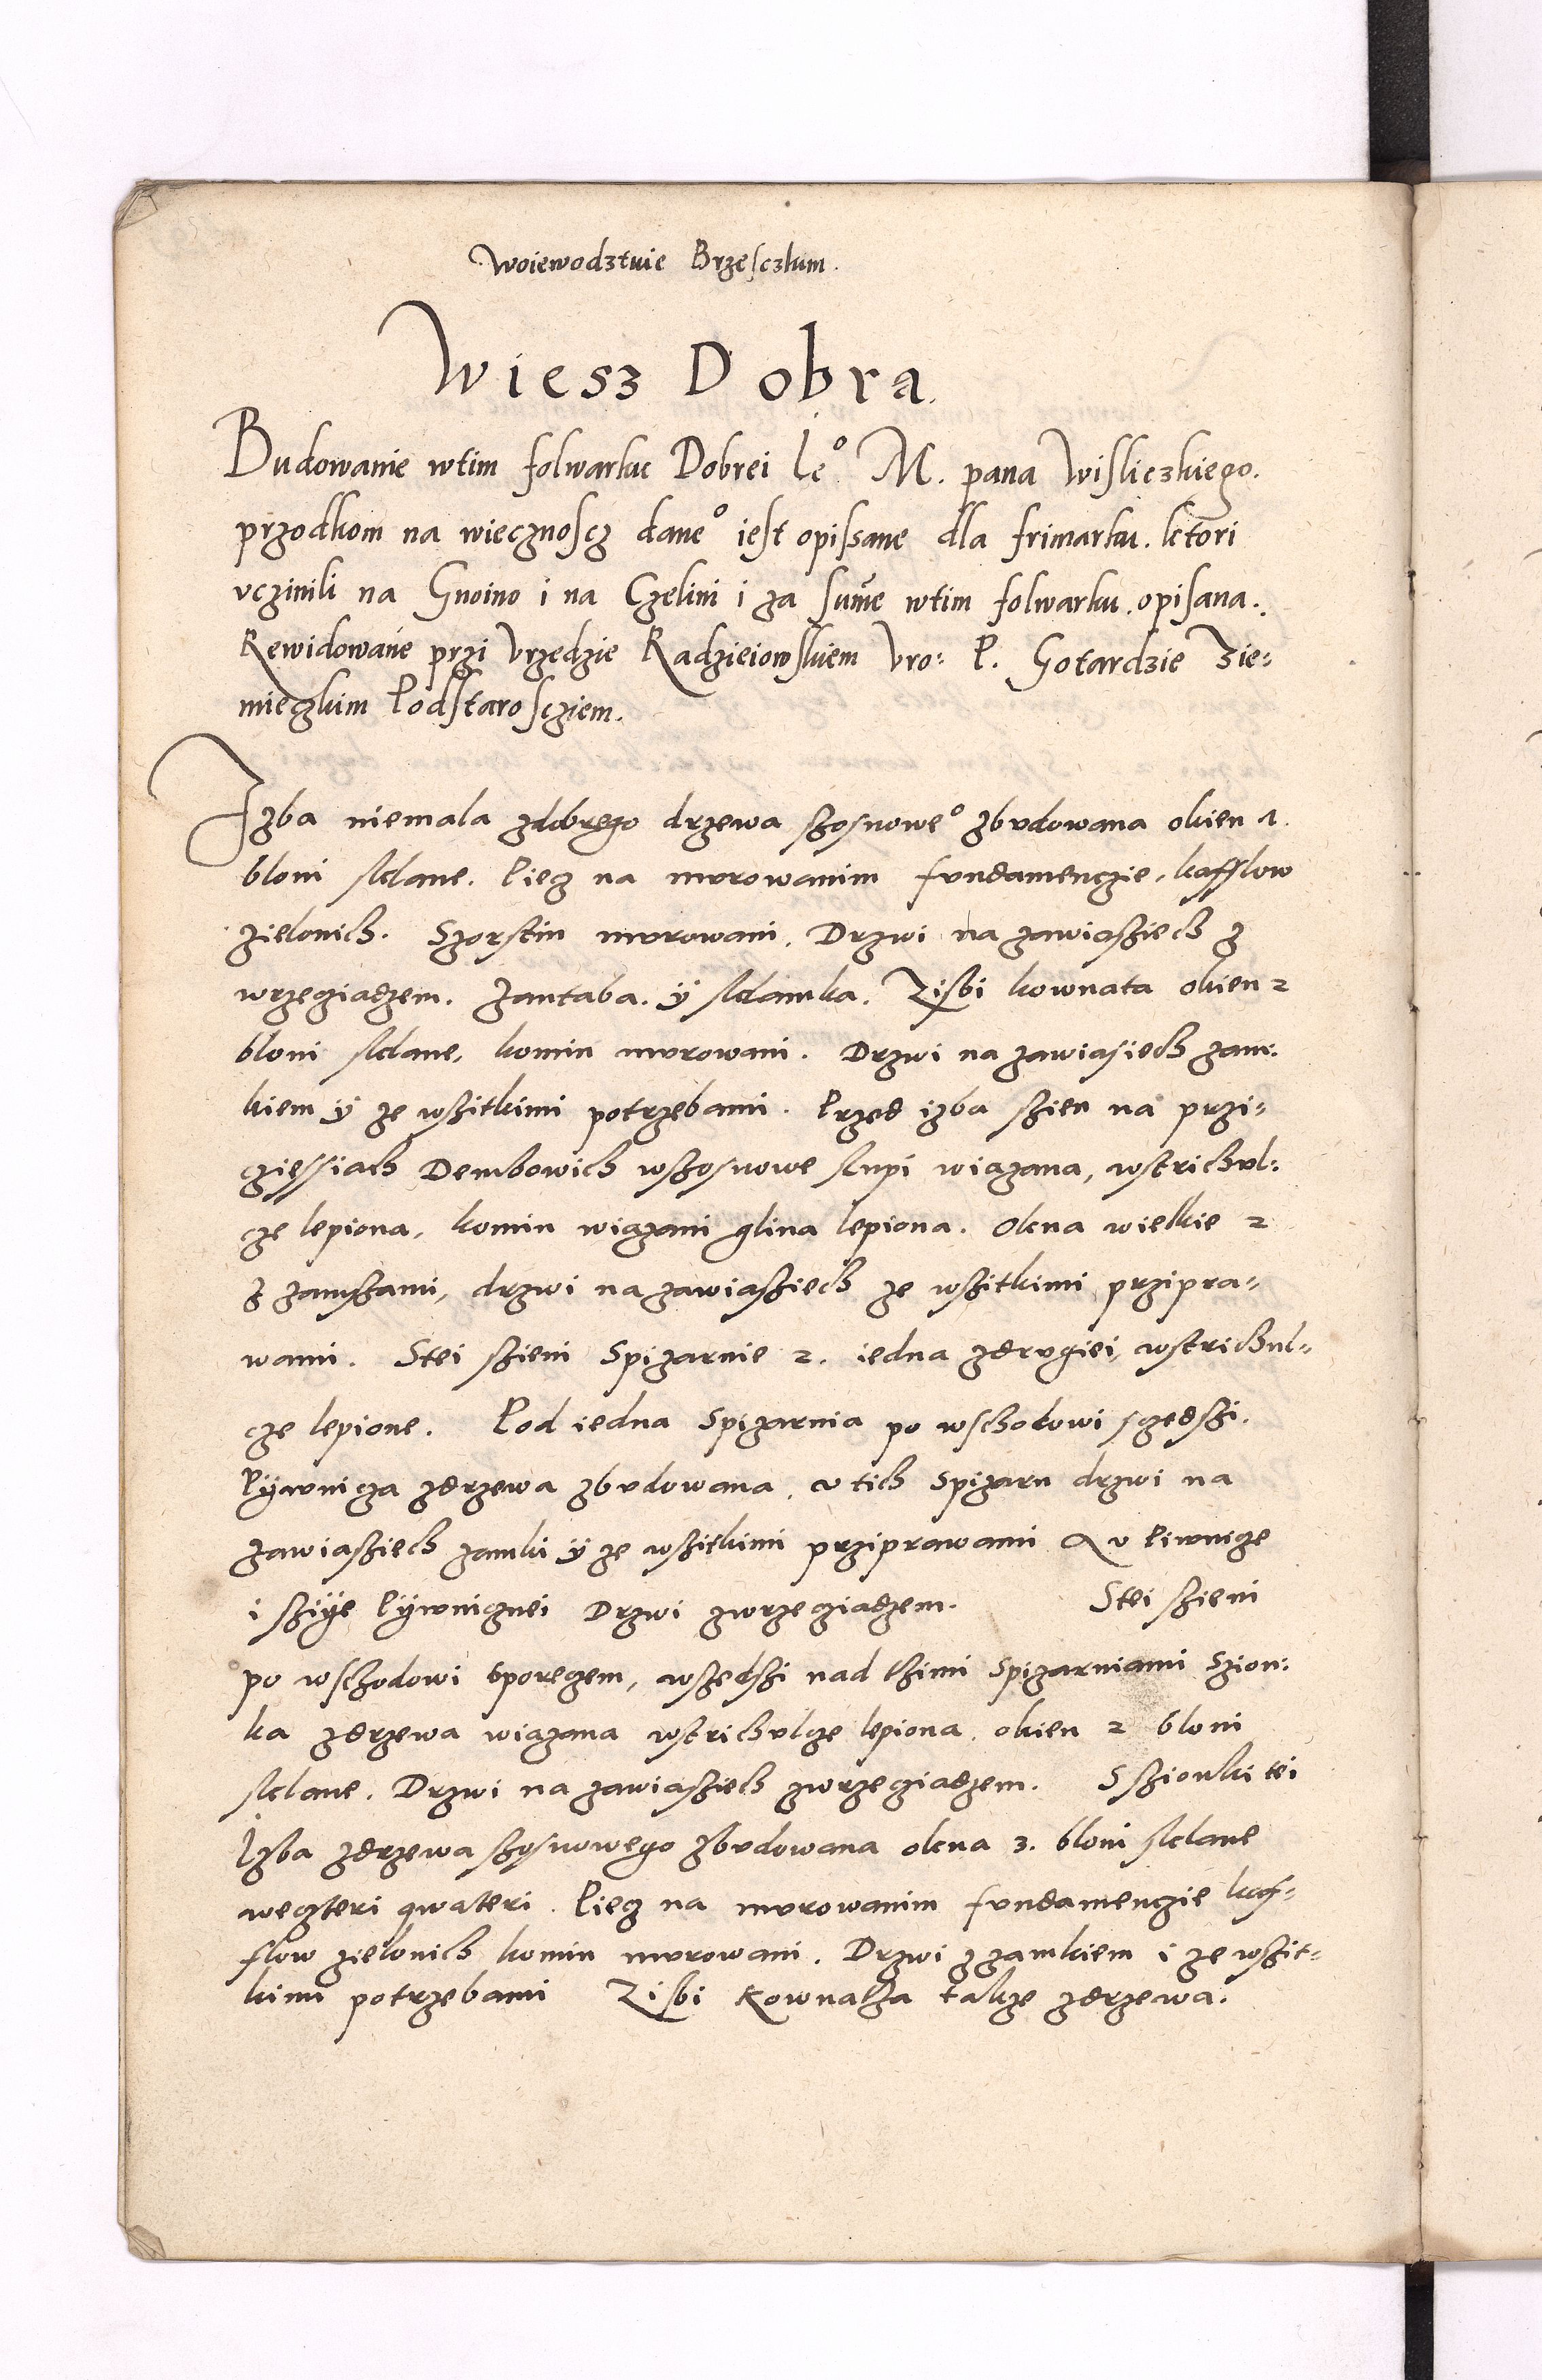 Woiewodztwie Brzesczkim.
Wiesz Dobra.
Budowanie wtim folwarku Dobrei Ie° M. pana Wisliczkiego.
przodkom na wiecznoscz dane° iest opissane dla frimarku. ktori
vczinili na Gnoino i na Czelini i za sume wtim folwarku. opisana.
Rewidowane przi Vrzedzie Radzieiowskiem Vro: P. Gotardzie Zie=
mieczkim Podstaroscziem.
Izba niemala zdobrego drzewa szosnowe° zbvdowana okien 1.
bloni sklane. Piecz na mvrowanim fvndamenczie, kafflow
zielonich. Szorstin mvrowani. Drzwi na zawiasziech z
wrzecziadzem. zantaba. ÿ sklamka. Zisbi kownata okien 2
bloni sklane, komin mvrowani. Drzwi na zawiasiech zam:
kiem ÿ ze wszitkimi potrzebami. Przed izba szien na przi=
cziessiach Dembowich wszosnowe slupi wiazana, wstrichvl:
cze lepiona, komin wiazani glina lepiona. Okna wielkie 2
z zamszami, drzwi na zawiasziech ze wszitkimi przipra=
wami. Stei szieni Spizarnie 2. iedna zdrvgiei, wstrichul=
cze lepione. Pod iedna Spizarnia po wschodowi szedszi.
Pÿwnicza zdrzewa zbvdowana. v tich Spizarn drzwi na
zawiasziech zamki ÿ ze wszitkimi prziprawami & v Piwnicze
i sziÿe Pÿwnicznei Drzwi zwrzecziadzem. Stei szieni
po wschodowi sporeczem, wszedszi nad thimi Spizarniami Szion:
ka zdrzewa wiazana wstrichvlcze lepiona. okien 2 bloni
sklane. Drzwi na zawiasziech zwrzecziadzem. Sszionki tei
Izba zdrzewa szosnowego zbvdowana okna 3. bloni sklane
weczteri qwateri. Piecz na mvrowanim fvndamenczie kaf=
flow zielonich komin mvrowani. Drzwi z zamkiem i ze wszit=
kimi potrzebami Zisbi Kownatha takze zdrzewa.